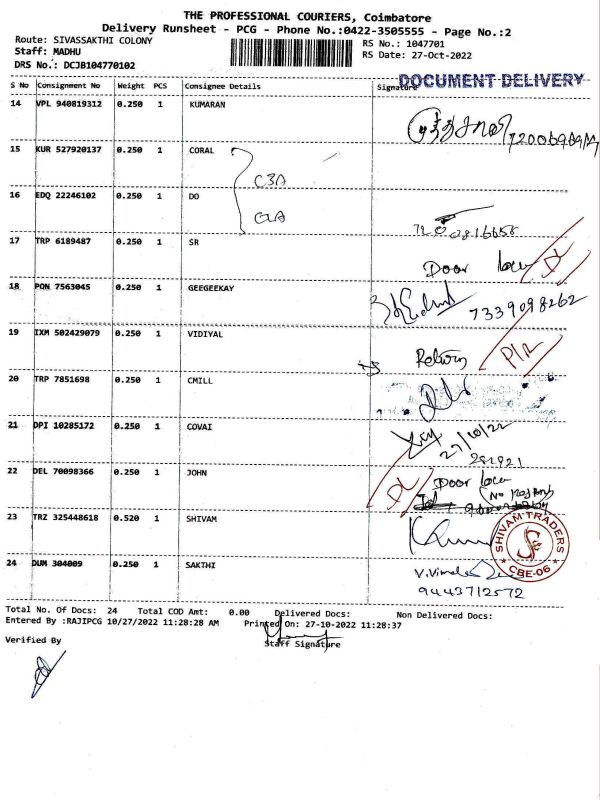 THE PROFESSIONAL COURIERS, Coimbatore
Delivery Runsheet - PCG - Phone No.:0422-3505555 - Page No.:2
Route: SIVASSAKTHI COLONY RS No.: 1047701
Staff: MADHU RS Date: 27-Oct-2022
DRS No.: DCJB104770102
DOCUMENT DELIVERY
S No Consignment No Weight PCS Consignee Details Signature
14 VPL 940819312 0.250 1 KUMARAN
15 KUR 527920137 0.250 1 CORAL
16 EDQ 22246102 0.250 1 DO
17 TRP 6189487 0.250 1 SR
Door DL
18 PON 7563045 0.250 1 GEEGEEKAY
7339098262
19 IXM 502429079 0.250 1 VIDIYAL
Return P/R
20 TRP 7851698 0.250 1 CMILL
21 DPI 10285172 0.250 1 COVAI
27/10/22
22 DEL 70098366 0.250 1 JOHN
Door DL
23 TRZ 325448618 0.520 1 SHIVAM
SHIVAM TRADERS
CBE-06
24 DUM 304009 0.250 1 SAKTHI
9443712572
Total No. Of Docs: 24 Total COD Amt: 0.00 Delivered Docs: Non Delivered Docs:
Entered By :RAJIPCG 10/27/2022 11:28:28 AM Printed On: 27-10-2022 11:28:37
Verified By Staff Signature